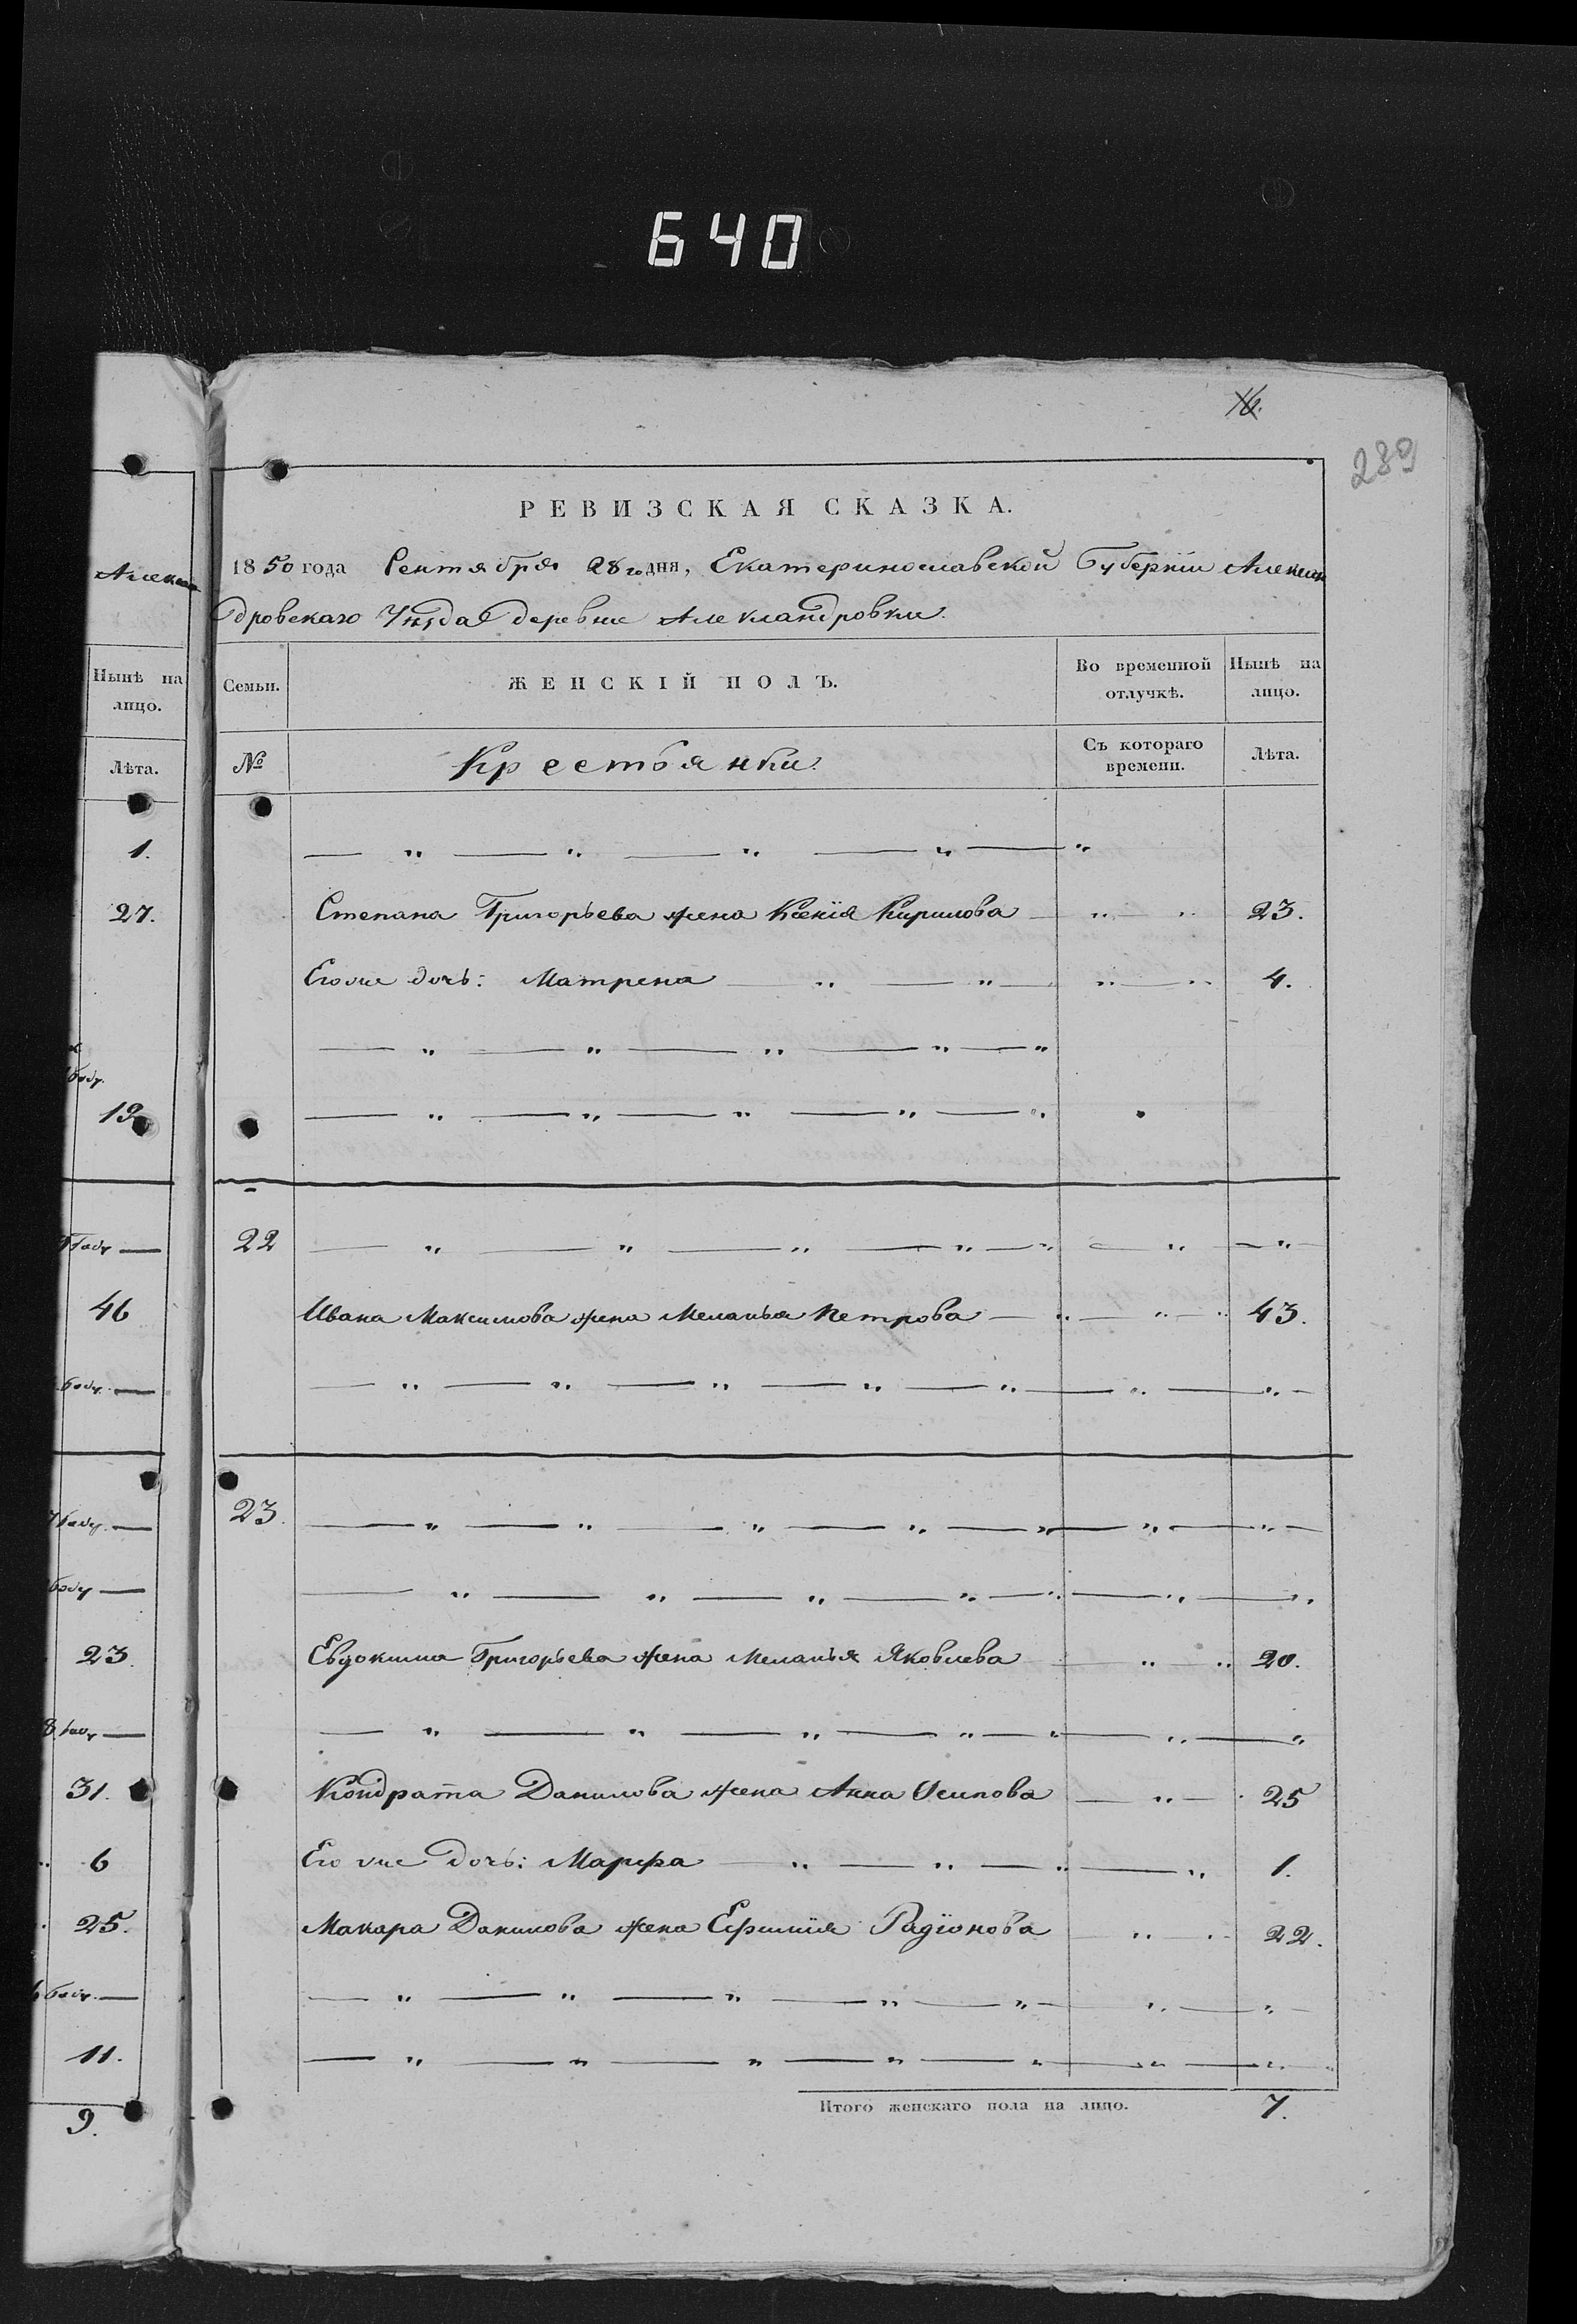 640
16.
289
РЕВИЗСКАЯ СКАЗКА.
1850 года Сентября 28го дня, Екатеринославской Губерніи Алексан
дровскаго Уѣзда деревни Александровки.
Семьи.
ЖЕНСКІЙ ПОЛЪ.
Во временной отлучкѣ.
Нынѣ на лицо.
№
Крестьянки.
Съ котораго времени.
Лѣта.
— „ — „ — „ — „ — „
Степана Григорьева жена Ксенія Кирилова — „ — „ 23.
Его же дочь: Матрена — „ — „ — „ — „ 4.
— „ — „ — „ — „ — „
— „ — „ — „ — „ — „
22 — „ — „ — „ — „ — „ — „ — „
Ивана Максимова жена Меланья Петрова — „ — „ — „ 43.
— „ — „ — „ — „ — „ — „ — „
23. — „ — „ — „ — „ — „ — „ — „
— „ — „ — „ — „ — „ — „ — „
Евдокима Григорьева жена Меланья Яковлева — „ „ 20.
— „ — „ — „ — „ — „ — „ — „
Кондрата Данилова жена Анна Осипова — „ — 25
Его же дочь: Марфа — „ — „ — „ — „ 1.
Макара Данилова жена Ефимія Радіонова — „ — „ 22.
— „ — „ — „ — „ — „ — „ — „
— „ — „ — „ — „ — „ — „ — „
Итого женскаго пола на лицо. 7.
Алексан
Нынѣ на лицо.
Лѣта.
1.
27.
19
46
23.
31.
6
25.
11.
9.